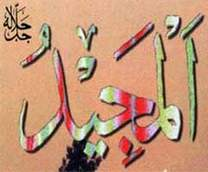 جل جلاله
اَلْمَجِيْدُ